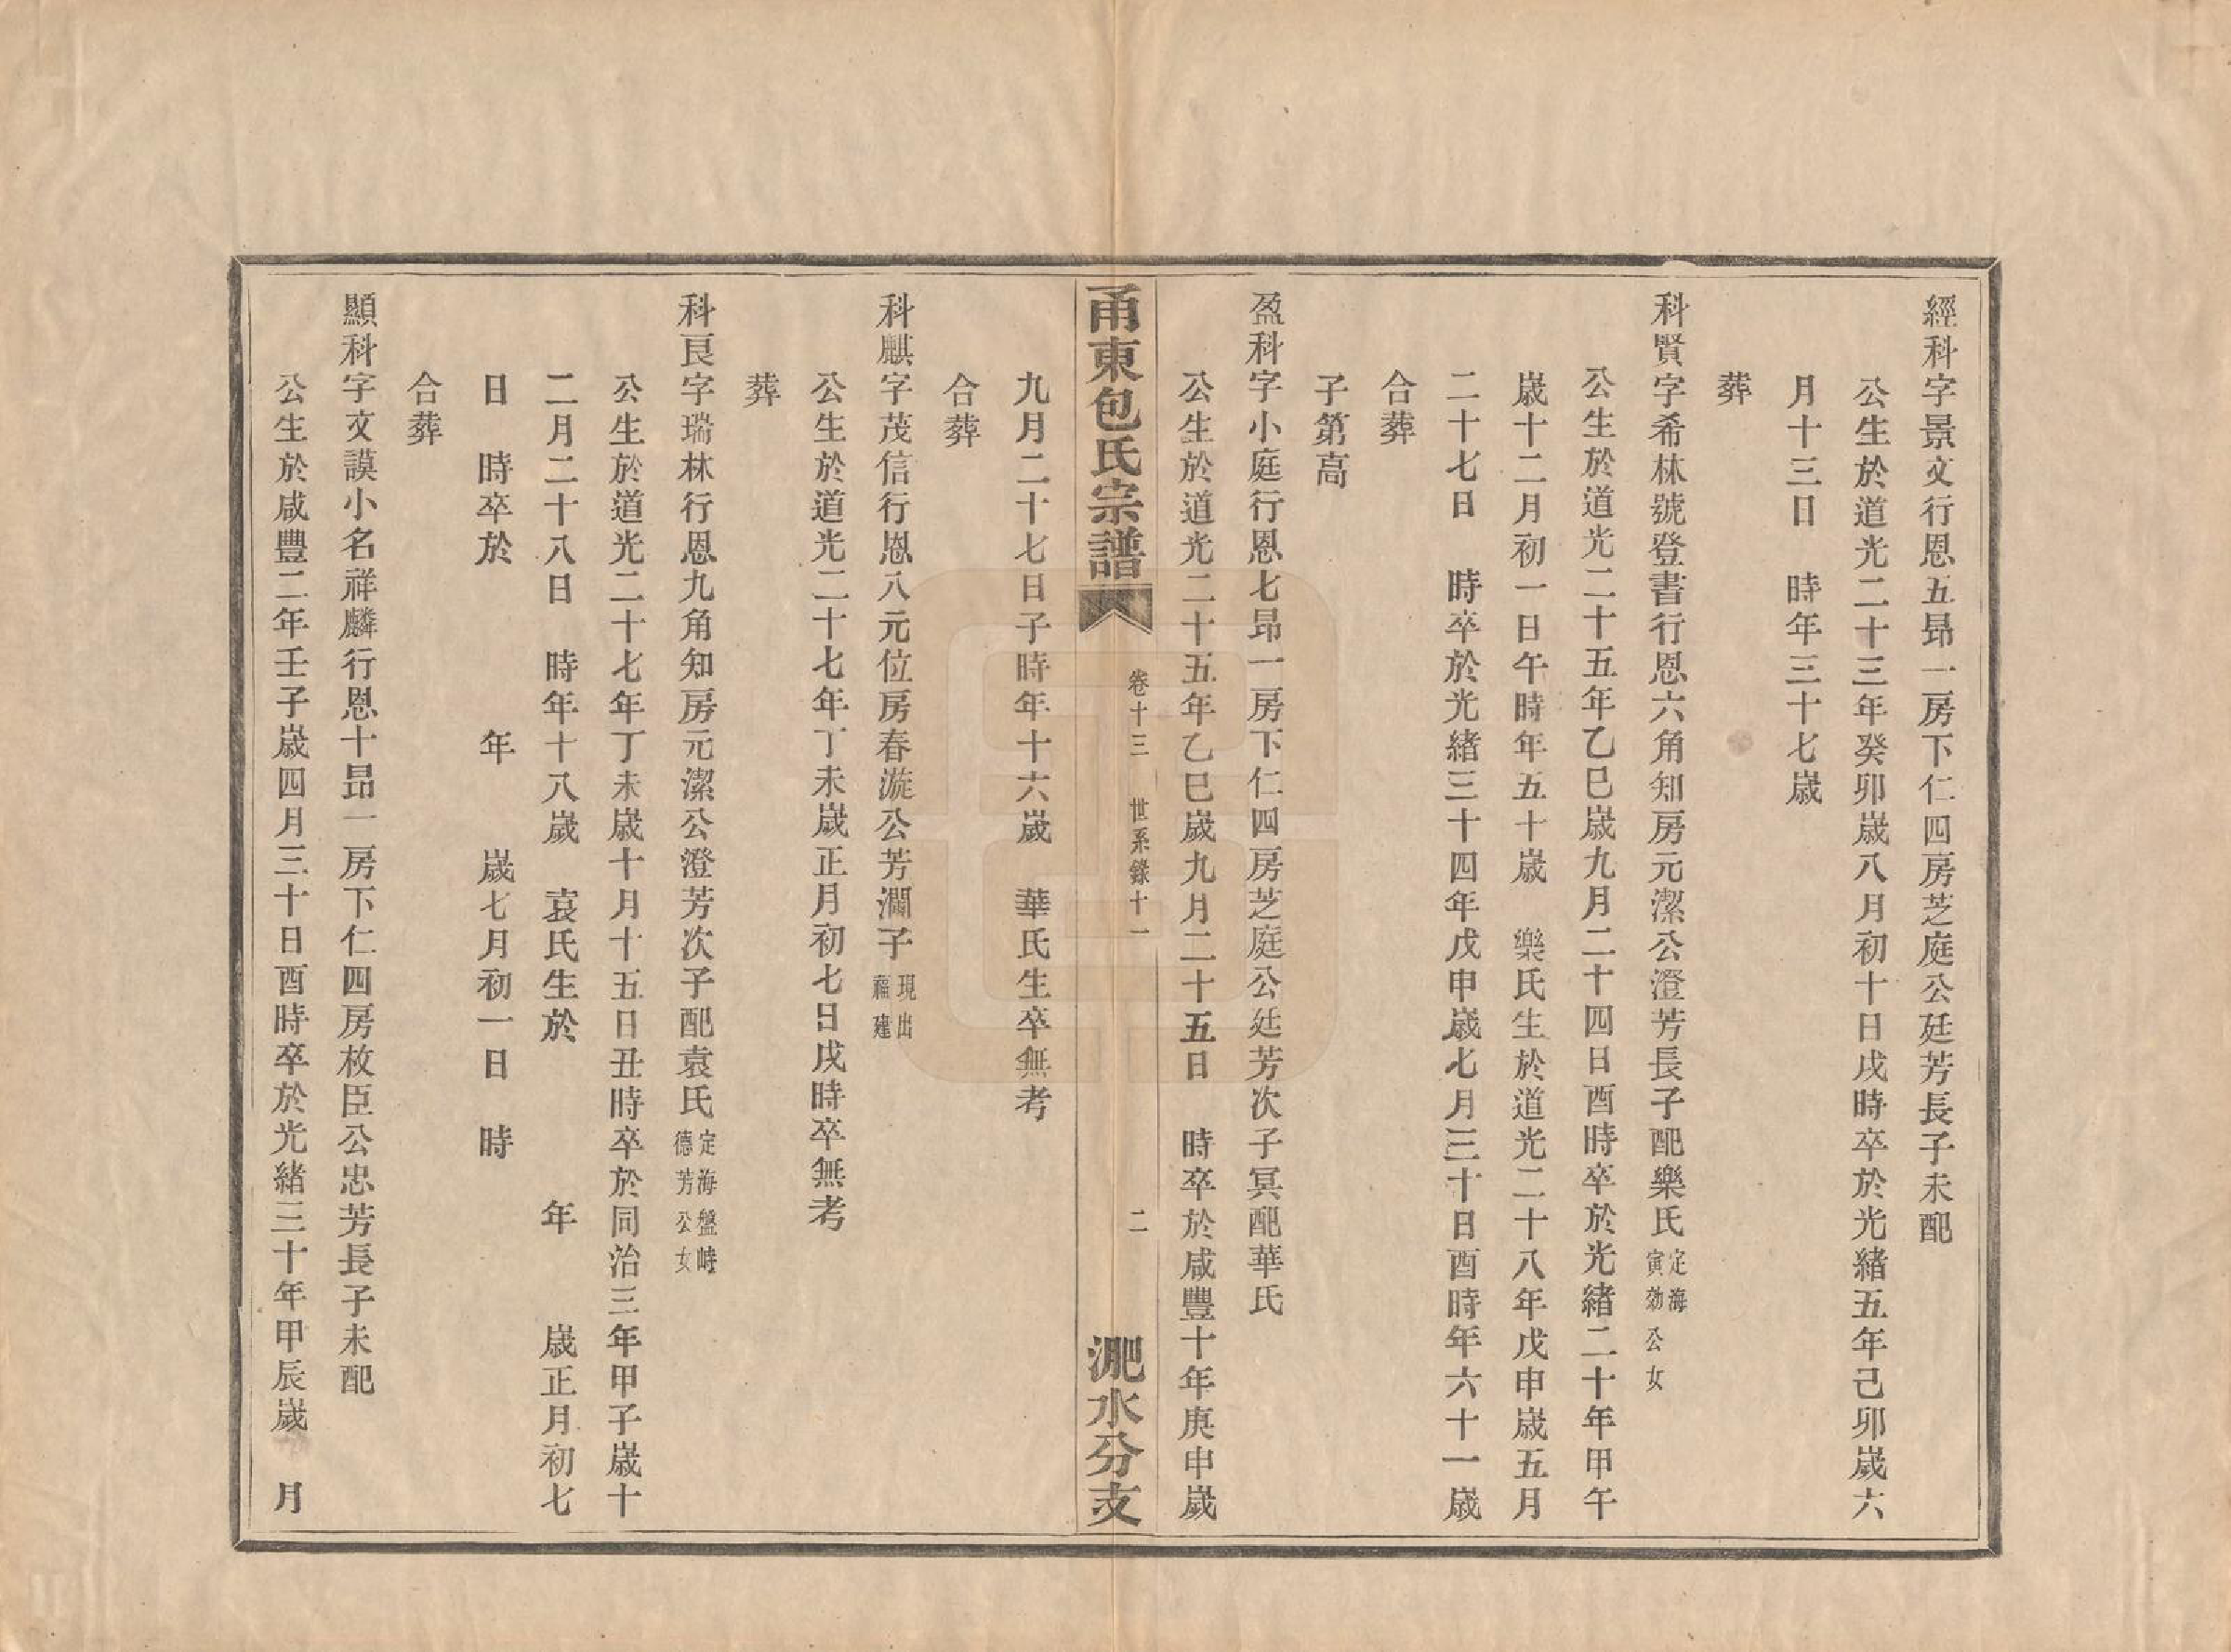 經科字景文行恩五昂一房下仁四房芝庭公廷芳長子未配
公生於道光二十三年癸卯歲八月初十日戌時卒於光緒五年己卯歲六
月十三日 時年三十七歲
葬
科賢字希林號登書行恩六角知房元潔公澄芳長子配樂氏定海寅効公女
公生於道光二十五年乙巳歲九月二十四日酉時卒於光緒二十年甲午
歲十二月初一日午時年五十歲 樂氏生於道光二十八年戊申歲五月
二十七日 時卒於光緒三十四年戊申歲七月三十日酉時年六十一歲
合葬
子第高
盈科字小庭行恩七昂一房下仁四房芝庭公廷芳次子冥配華氏
公生於道光二十五年乙巳歲九月二十五日 時卒於咸豐十年庚申歲
甬東包氏宗譜 卷十三 世系錄十一 二 淝水分支
九月二十七日子時年十六歲 華氏生卒無考
合葬
科麒字茂信行恩八元位房春漩公芳瀾子現出福建
公生於道光二十七年丁未歲正月初七日戌時卒無考
葬
科良字瑞林行恩九角知房元潔公澄芳次子配袁氏定海盤峙德芳公女
公生於道光二十七年丁未歲十月十五日丑時卒於同治三年甲子歲十
二月二十八日 時年十八歲 袁氏生於 年 歲正月初七
日 時卒於 年 歲七月初一日 時
合葬
顯科字文謨小名祥麟行恩十昂一房下仁四房枚臣公忠芳長子未配
公生於咸豐二年壬子歲四月三十日酉時卒於光緒三十年甲辰歲 月